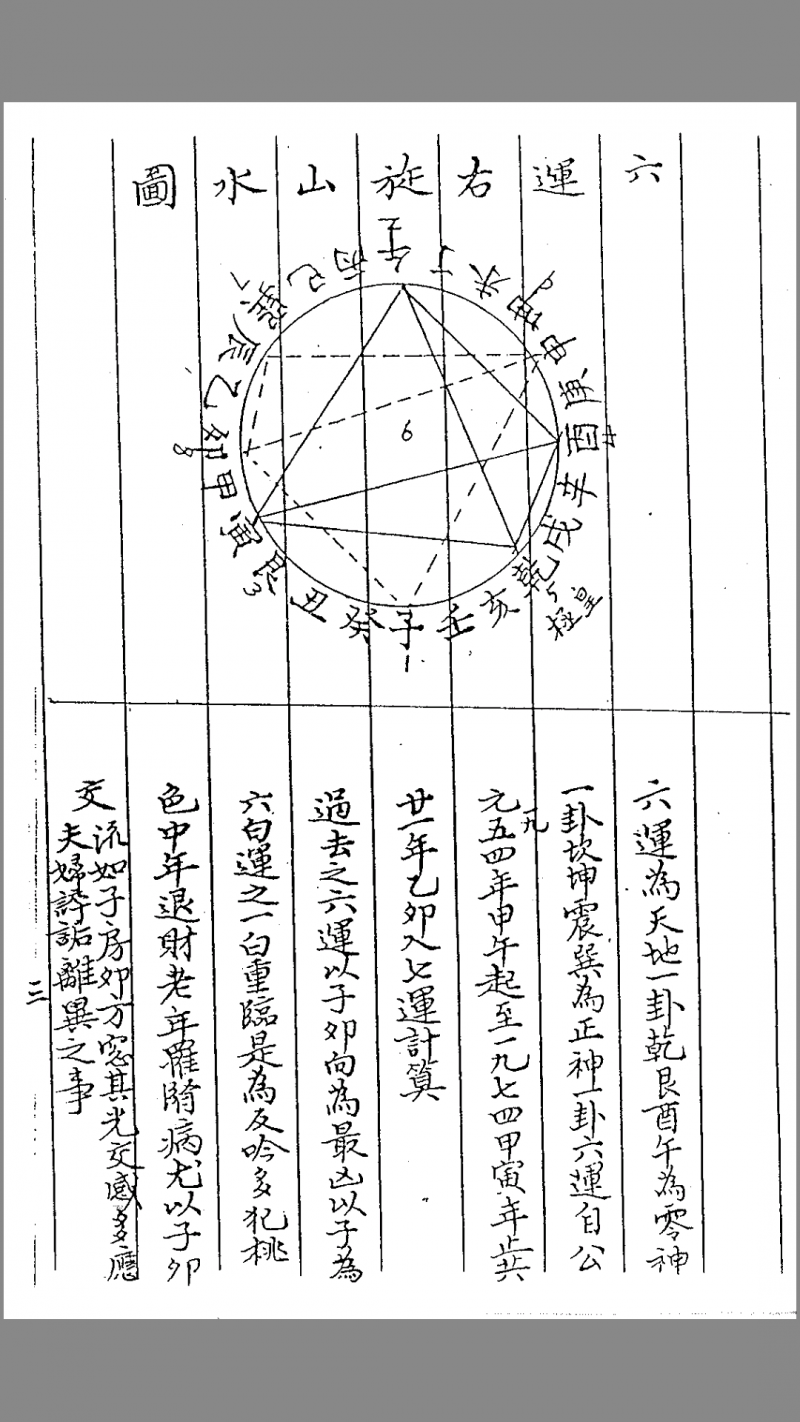 六運右旋山水圖
午丁未坤申庚酉辛戌乾亥壬子癸丑艮寅甲卯乙辰巽巳丙
6
1
3
8
5
皇極
六運為天地一卦乾艮酉午為零神
一卦坎坤震巽為正神一卦六運自公
元一九五四年甲午起至一九七四甲寅年止共
廿一年乙卯入七運計算
過去之六運以子卯向為最凶以子為
六白運之一白重臨是為反吟多犯桃
色中年退財老年罹隋病尤以子卯
交流如子房卯方窓其光交感多應
夫婦誶詬離異之事
三